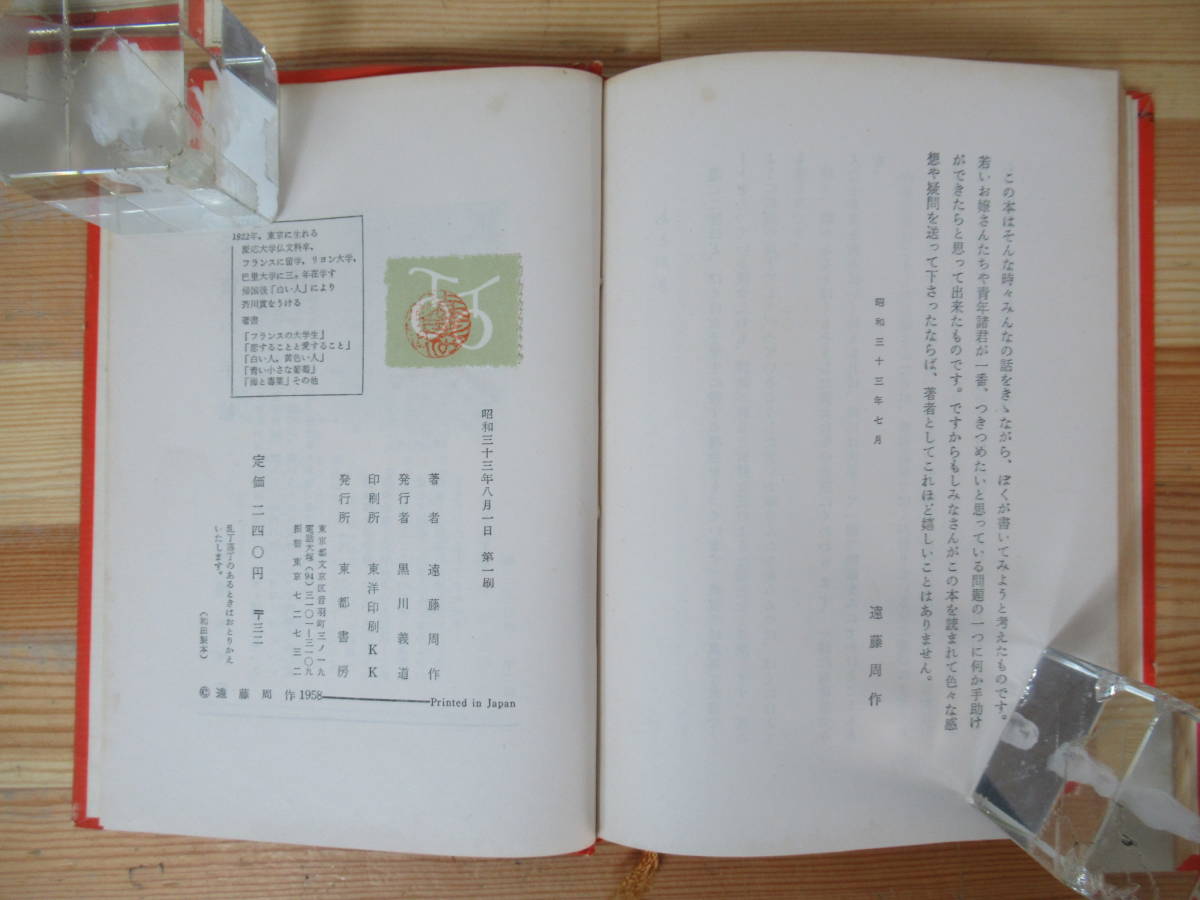 この本はそんな時々みんなの話をきゝながら、ぼくが書いてみようと考えたものです。
若いお嫁さんたちや青年諸君が一番、つきつめたいと思っている問題の一つに何か手助け
ができたらと思って出来たものです。ですからもしみなさんがこの本を読まれて色々な感
想や疑問を送って下さったならば、著者としてこれほど嬉しいことはありません。
昭和三十三年七月
遠藤周作
1922年,東京に生れる
慶応大学仏文科卒,
フランスに留学,リヨン大学,
巴里大学に三ヶ年在学す
帰国後「白い人」により
芥川賞をうける
著書
「フランスの大学生」
「恋することと愛すること」
「白い人,黄色い人」
「青い小さな葡萄」
「海と毒薬」その他
昭和三十三年八月一日 第一刷
著者 遠藤周作
発行者 黒川義道
印刷所 東洋印刷KK
発行所 東都書房
東京都文京区音羽町三ノ一九
電話大塚(94)三一〇一―三一〇九
振替東京七二七三二
定価 二四〇円 〒三二
乱丁落丁のあるときはおとりかえ
いたします。
(和田製本)
© 遠藤周作1958
Printed in Japan